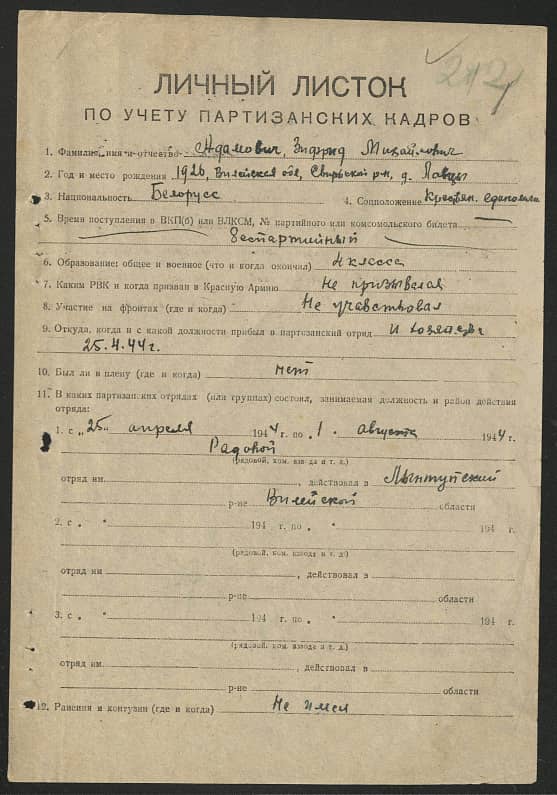 ЛИЧНЫЙ ЛИСТОК
ПО УЧЕТУ ПАРТИЗАНСКИХ КАДРОВ
1. Фамилия, имя и отчество Адамович, Зифрид Михайлович
2. Год и место рождения 1926, Вилейская обл, Свирьский р-н, д. Лавцы
3. Национальность Белорусс 4. Соцположение Крестьян.
5. Время поступления в ВКП(б) или ВЛКСМ, № партийного или комсомольского билета
беспартийный
6. Образование: общее и военное (что и когда окончил) 4 класса
7. Каким РВК и когда призван в Красную Армию Не призывался
8. Участие на фронтах (где и когда) Не учавствовал
9. Откуда, когда и с какой должности прибыл в партизанский отряд
25.4.44 г.
10. Был ли в плену (где и когда) нет
11. В каких партизанских отрядах (или группах) состоял, занимаемая должность и район действия
отряда:
1. с „25" апреля 1944 г. по „1. августа 1944 г.
Радовой
(рядовой, ком. взвода и т. д.)
отряд им. , действовал в Лынтупский
р-не Вилейской области
2. с „ " 194 г. по „ " 194 г.
(рядовой, ком. взвода и т. д.)
отряд им , действовал в
р-не области
3. с „ " 194 г. по „ " 194 г.
(рядовой, ком. взвода и т. д.)
отряд им. , действовал в
р-не области
12. Ранения и контузии (где и когда) Не имел